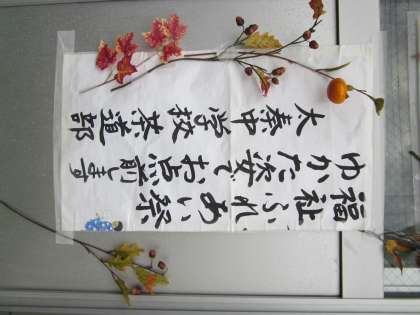 福祉ふれあい祭
ゆかた姿でお点前します
太秦中学校茶道部